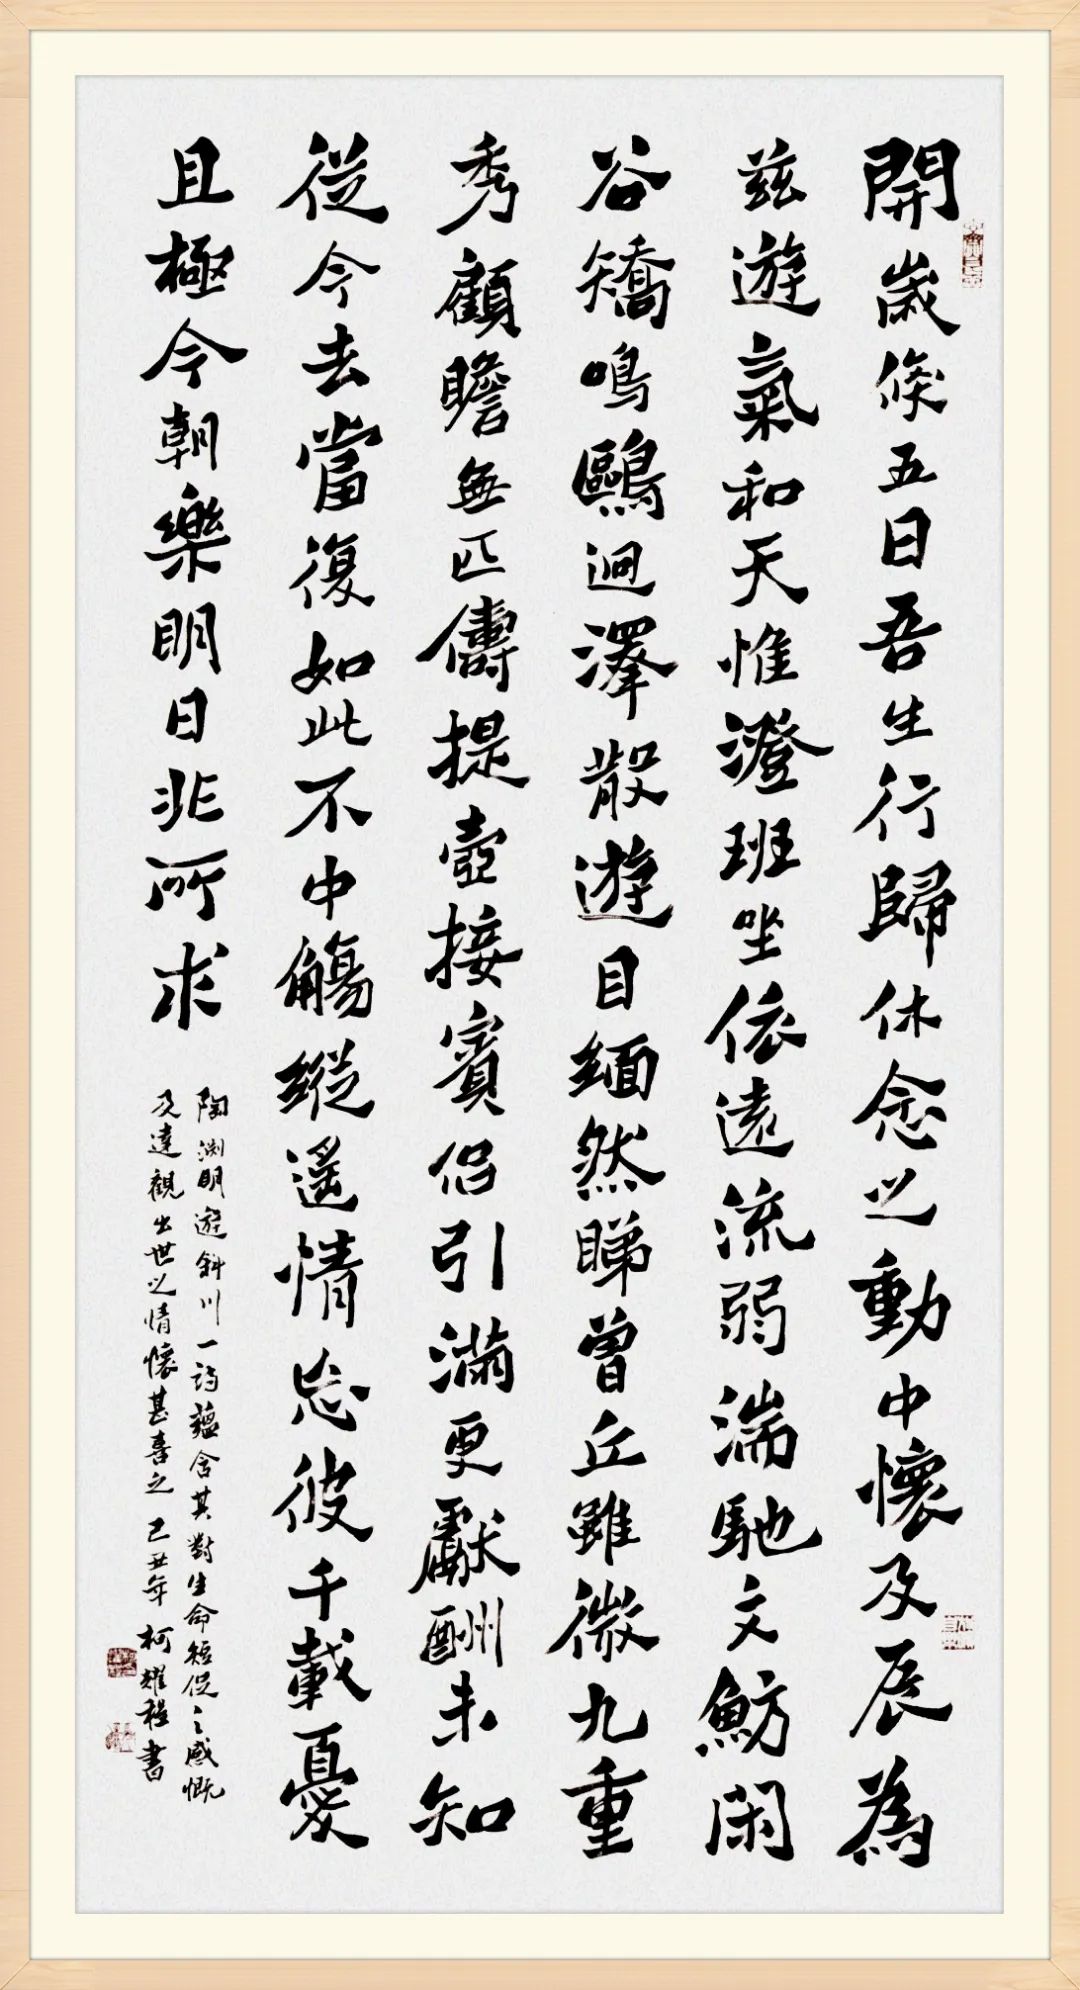 開歲倏五日吾生行歸休念之動中懷及辰為
兹遊氣和天惟澄班坐依遠流弱湍馳文魴閑
谷矯鳴鷗迥澤散遊目緬然睇曾丘雖微九重
秀顧瞻無匹儔提壺接賓侣引滿更獻酬未知
從今去當復如此不中觴縱遥情忘彼千載憂
且極今朝樂明日非所求
陶渊明遊斜川一詩蕴含其對生命短促之感慨
及達觀出世之情懷甚喜之 己丑年 柯耀程書